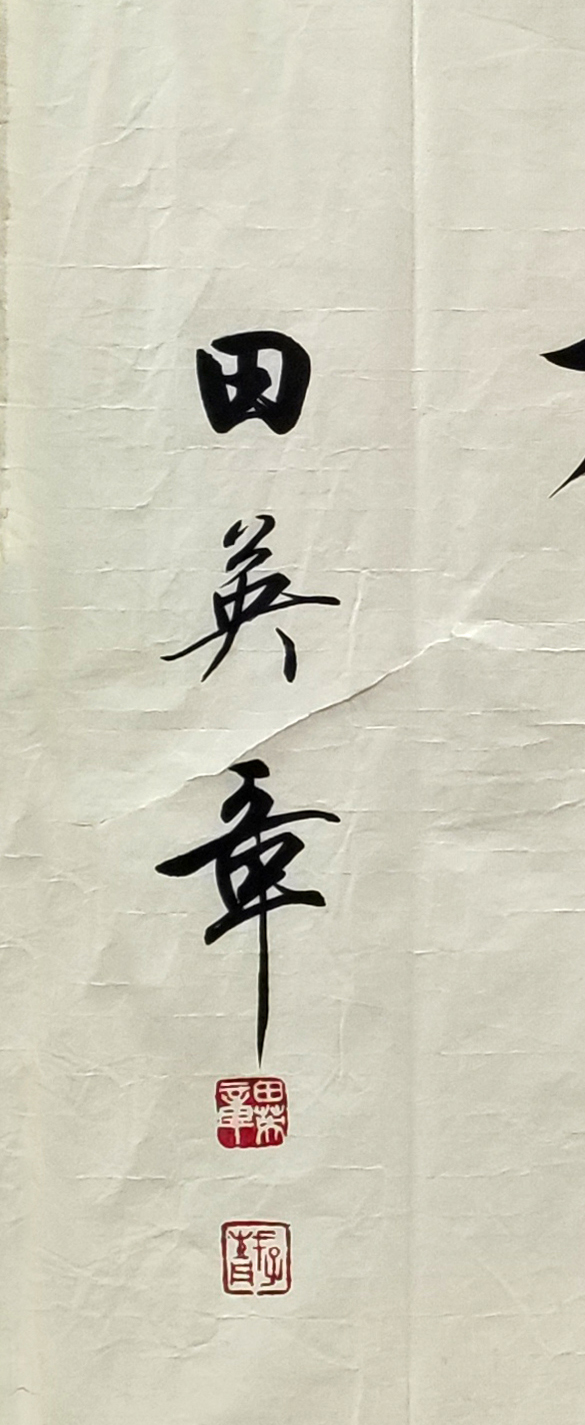 田英章
田英章